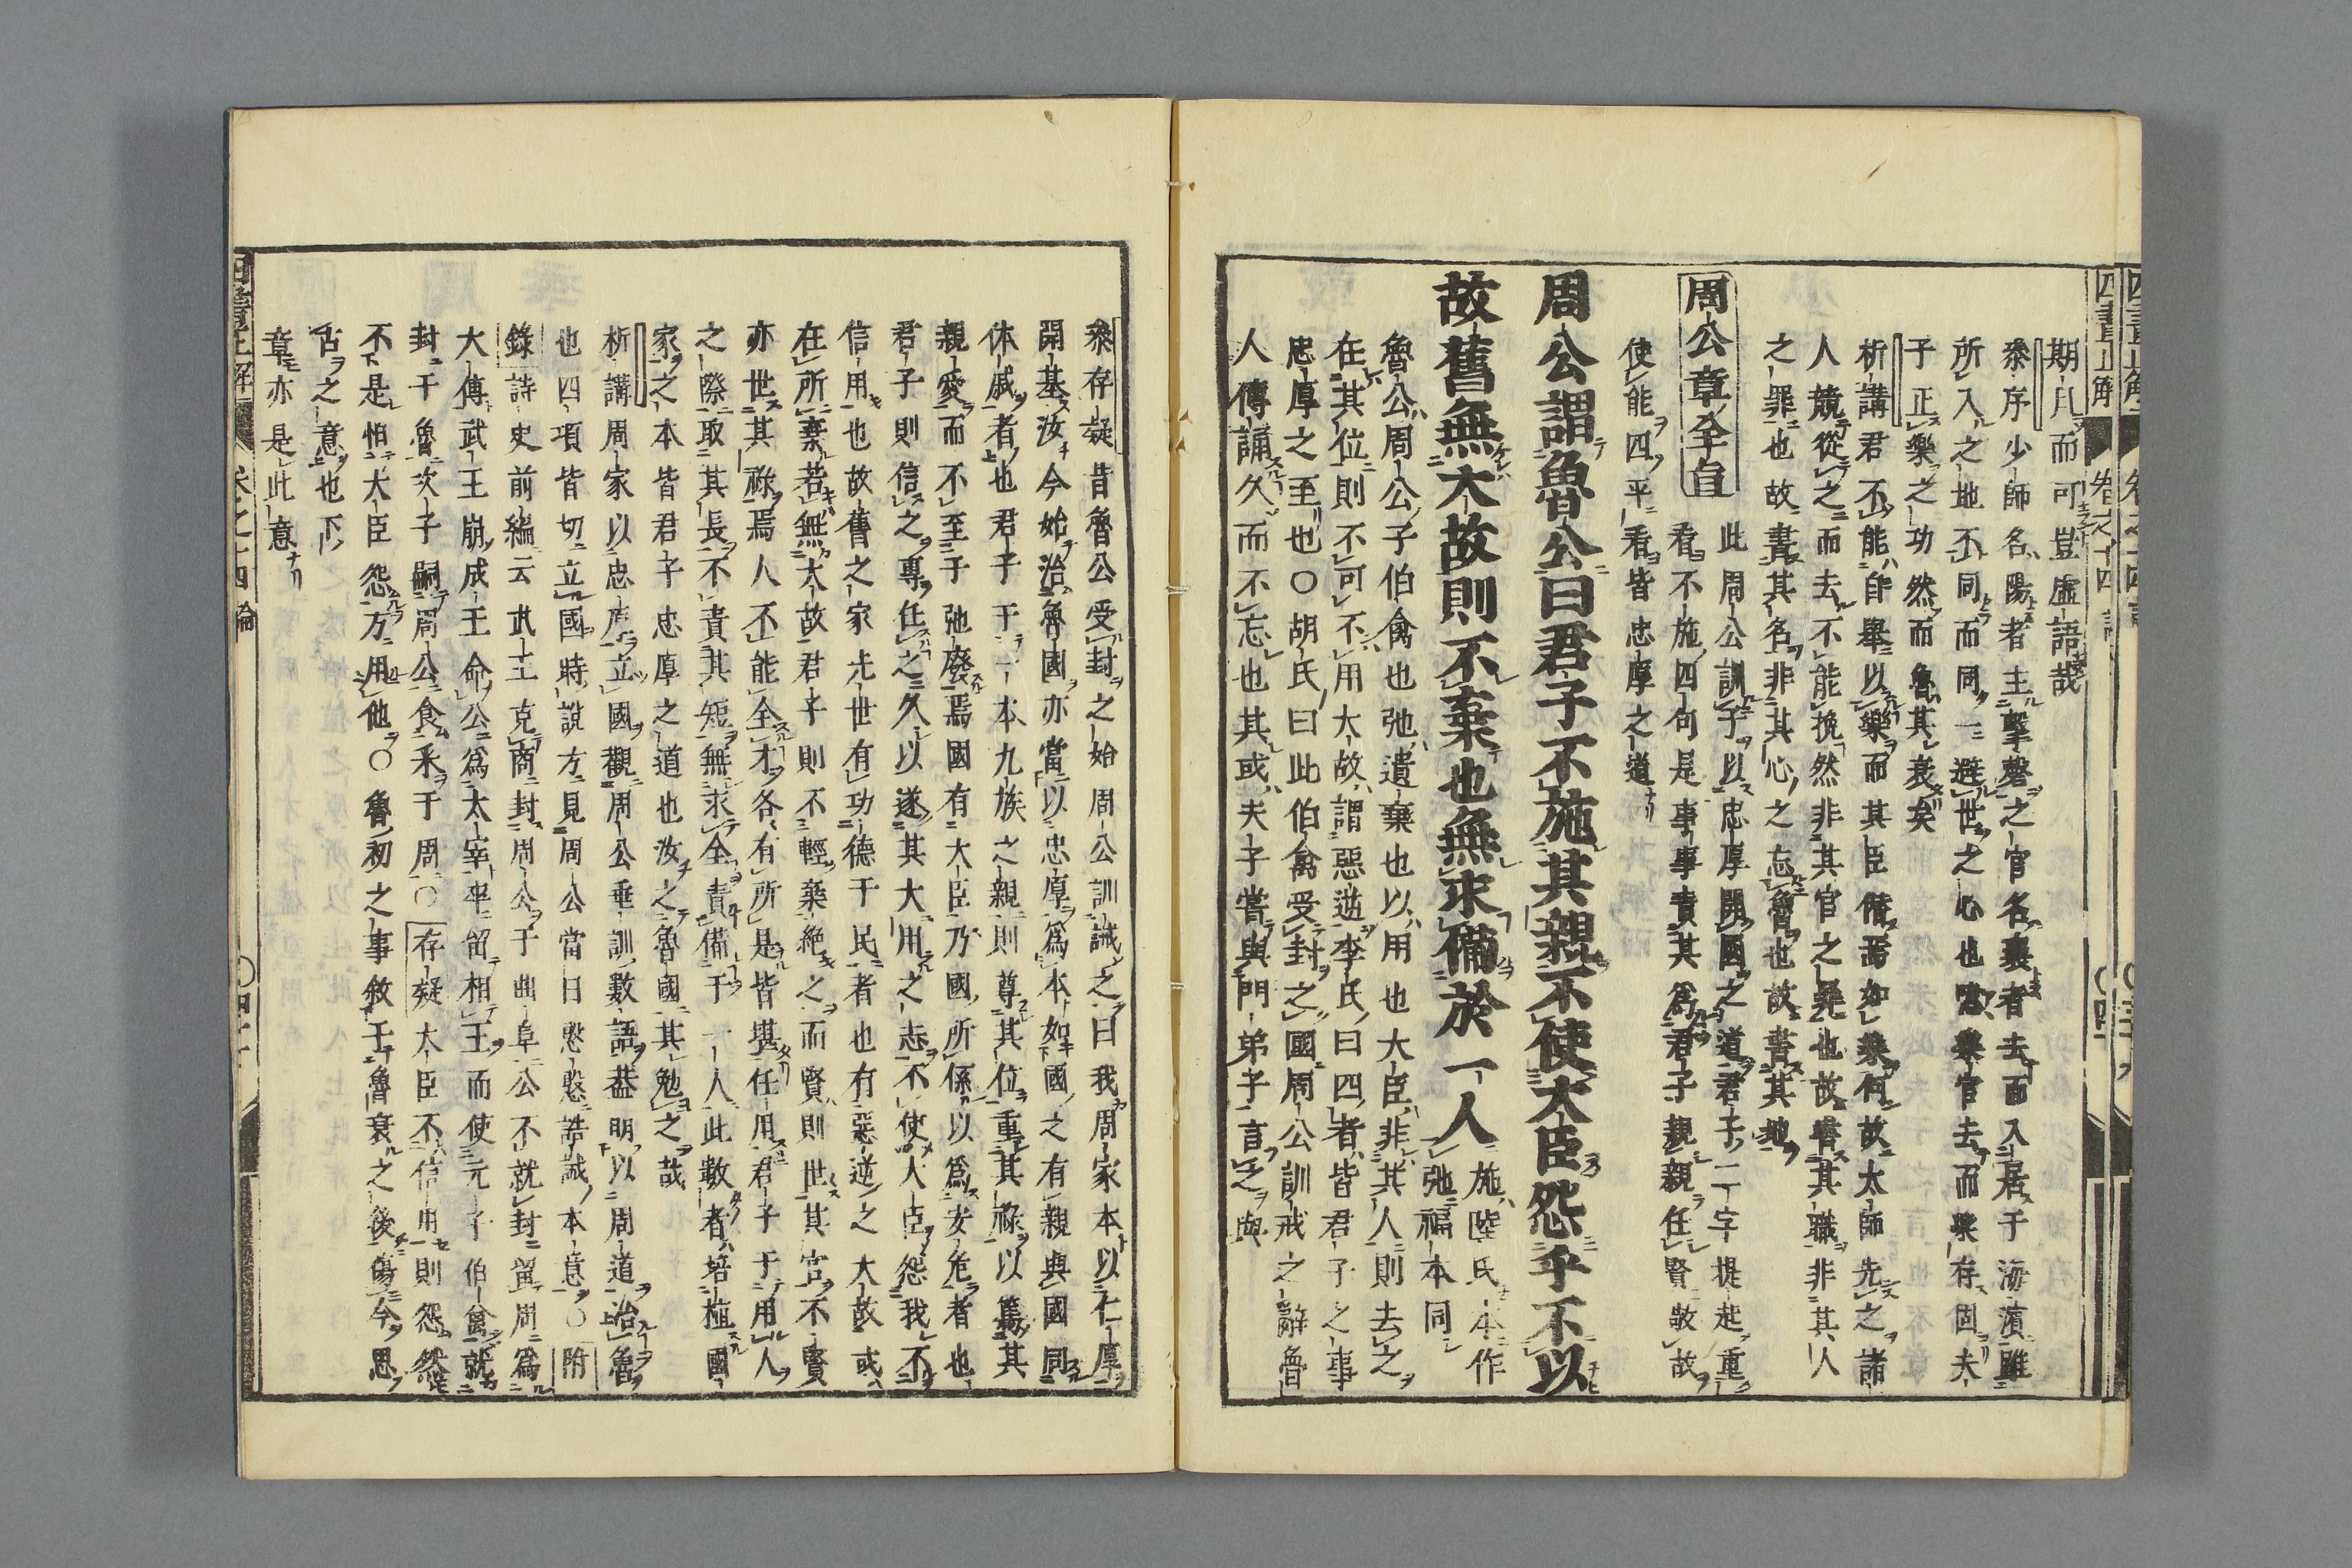 期月而可豈虛語哉
叅序少師名陽者主擊磬之官名襄者去而入居于海濱雖
所入之地不同而同一避世之心也噫樂官去而樂存固夫
子正樂之功然而魯其衰矣
析講君不能自舉以樂而其臣僭焉如樂何故太師先之諸
人競從之而去不能挽然非其官之罪也故書其職非其人
之罪也故書其名非其心之忘魯也故書其地
周公章全旨
此周公訓子以忠厚開國之道君子二字提起重
看不施四句是事事責其爲君子親親任賢敬故
使能四平看皆忠厚之道
周公謂魯公曰君子不施其親不使大臣怨乎不以
故舊無大故則不棄也無求備於一人
施陸氏本作
弛福本同
魯公周公子伯禽也弛遺棄也以用也大臣非其人則去之
在其位則不可不用大故謂惡逆李氏曰四者皆君子之事
忠厚之至也○胡氏曰此伯禽受封之國周公訓戒之辭魯
人傳誦久而不忘也其或夫子嘗與門弟子言之與
叅存疑昔魯公受封之始周公訓誡之曰我周家本以仁厚
開基汝今始治魯國亦當以忠厚爲本如國之有親與國同
休戚者也君子于一本九族之親則尊其位重其祿以篤其
親愛而不至于弛廢焉國有大臣乃國所係以爲安危者也
君子則信之專任之久以遂其大用之志不使大臣怨我不
信用也故舊之家先世有功德于民者也有惡逆之大故或
在所棄若無大故君子則不輕棄絕之而賢則世其官不賢
亦世其祿焉人不能全才各有所是皆堪任用君子于用人
之際取其長不責其短無求全責備于一人此數者培植國
家之本皆君子忠厚之道也汝之魯國其勉之哉
析講周家以忠厚立國觀周公垂訓數語葢明以周道治魯
也四項皆切立國時說方見周公當日慇懃誥誡本意○附
錄詩史前編云武王克商封周公于曲阜公不就封留周爲
大傅武王崩成王命公爲太宰卒留相王而使元子伯禽就
封于魯次子嗣周公食采于周○存疑大臣不信用則怨然
不是怕大臣怨方用他○魯初之事敘于魯衰之後傷今思
古之意也下
章亦是此意
四書正解
卷之十四
論